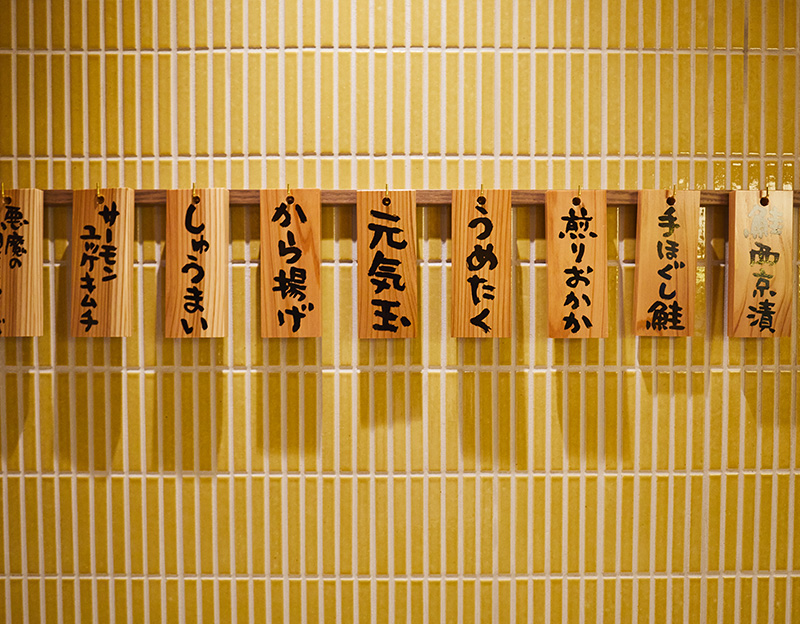 悪魔の
サーモン
ユッケキムチ
しゅうまい
から揚げ
元気玉
うめたく
煎りおかか
手ほぐし鮭
京漬